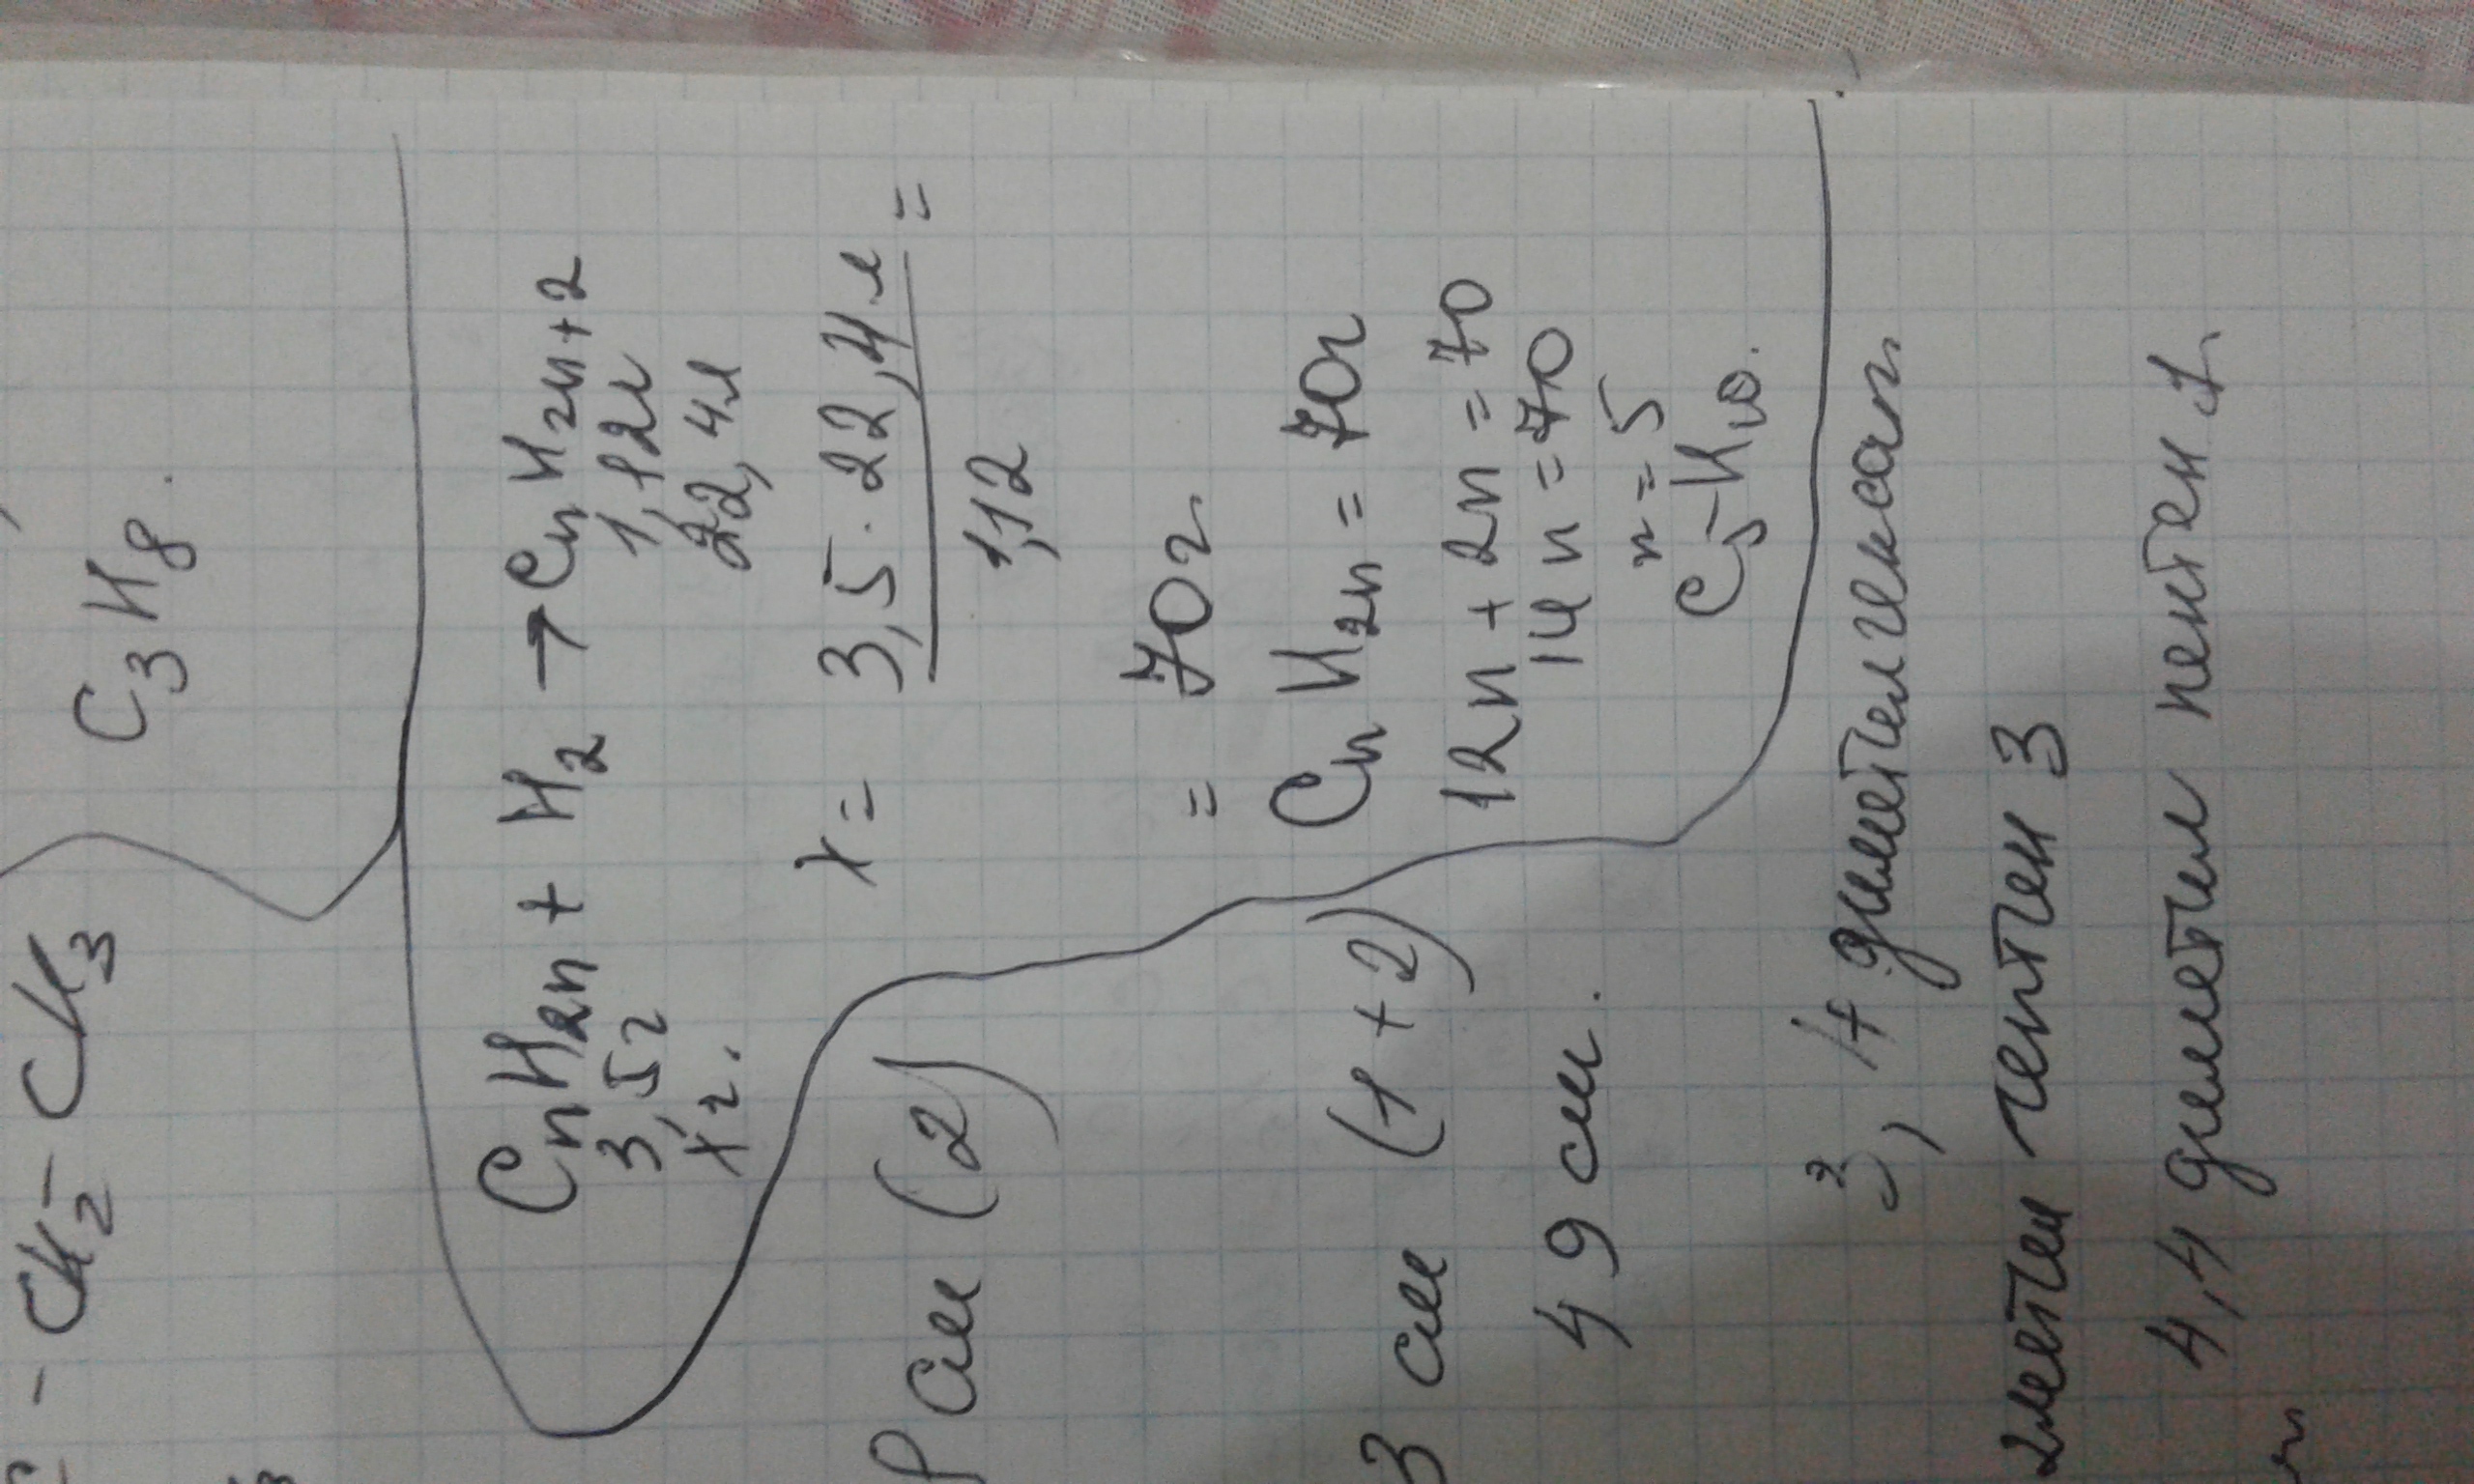 - CH₂ - CH₃
C₃H₈.
CnH₂n + H₂ → CnH₂n+2
3,5г 1,12л
xг. 22,4л
x = 3,5 · 22,4л =
1,12
= 70г
CnH₂n = 70г
12n + 2n = 70
14n = 70
n = 5
C₅H₁₀.
см (2)
3 см (1+2)
49 см.
3, 4 диметилгексан
2метил гептен 3
4,4 диметил пентен 1.